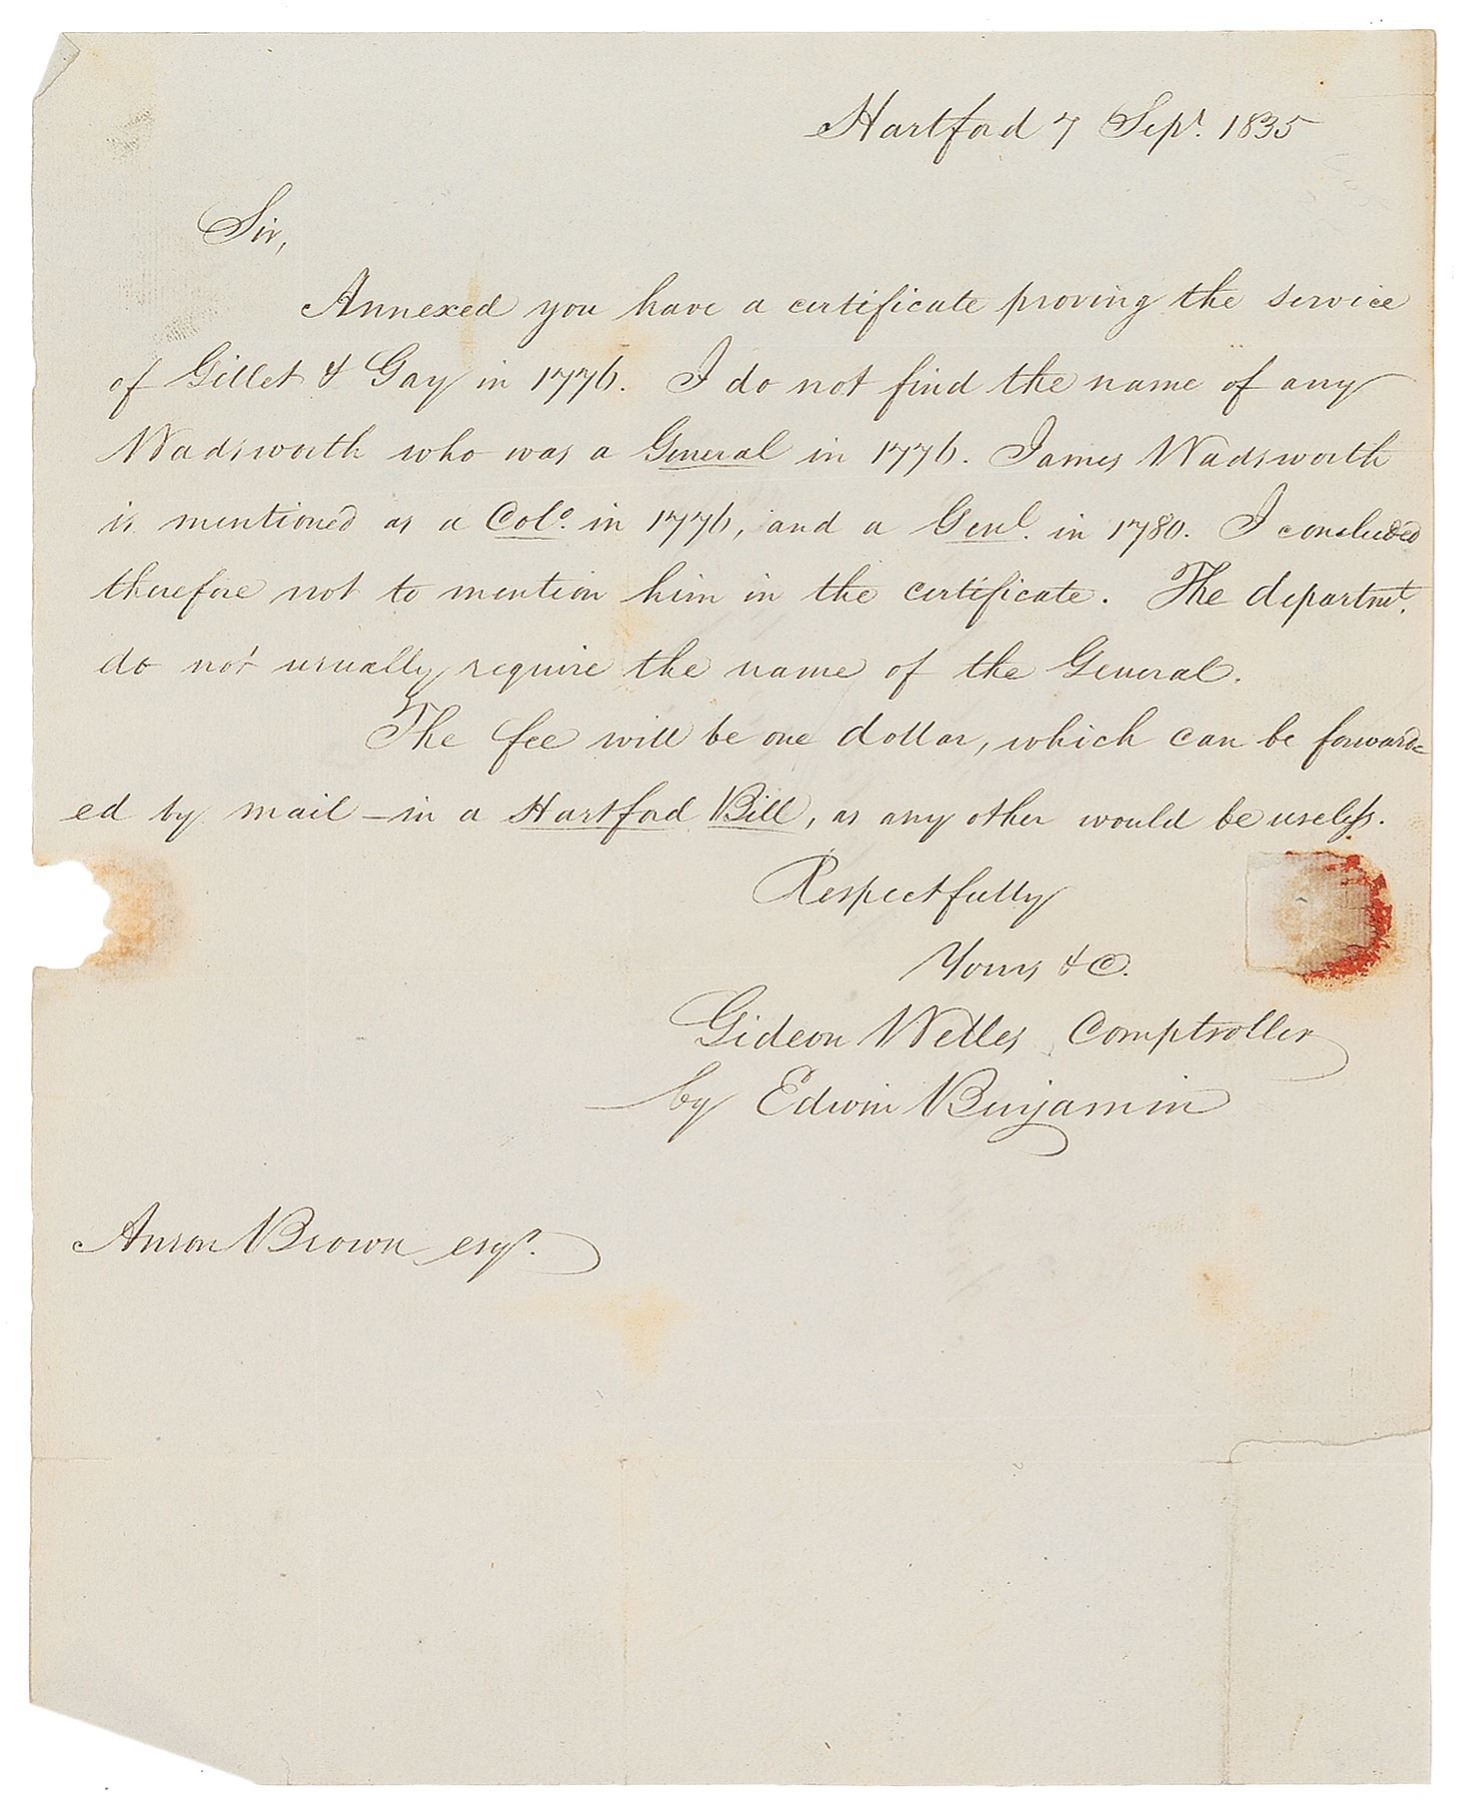 Hartford 7 Sept. 1835
Sir,
Annexed you have a certificate proving the service
of Gillet & Gay in 1776. I do not find the name of any
Wadsworth who was a General in 1776. James Wadsworth
is mentioned as a Colo. in 1776, and a Genl. in 1780. I concluded
therefore not to mention him in the certificate. The departmt.
do not usually require the name of the General.
The fee will be one dollar, which can be forward=
ed by mail – in a Hartford Bill, as any other would be useless.
Respectfully
Yours &c.
Gideon Welles Comptroller
by Edwin Benjamin
Anson Brown esqr.